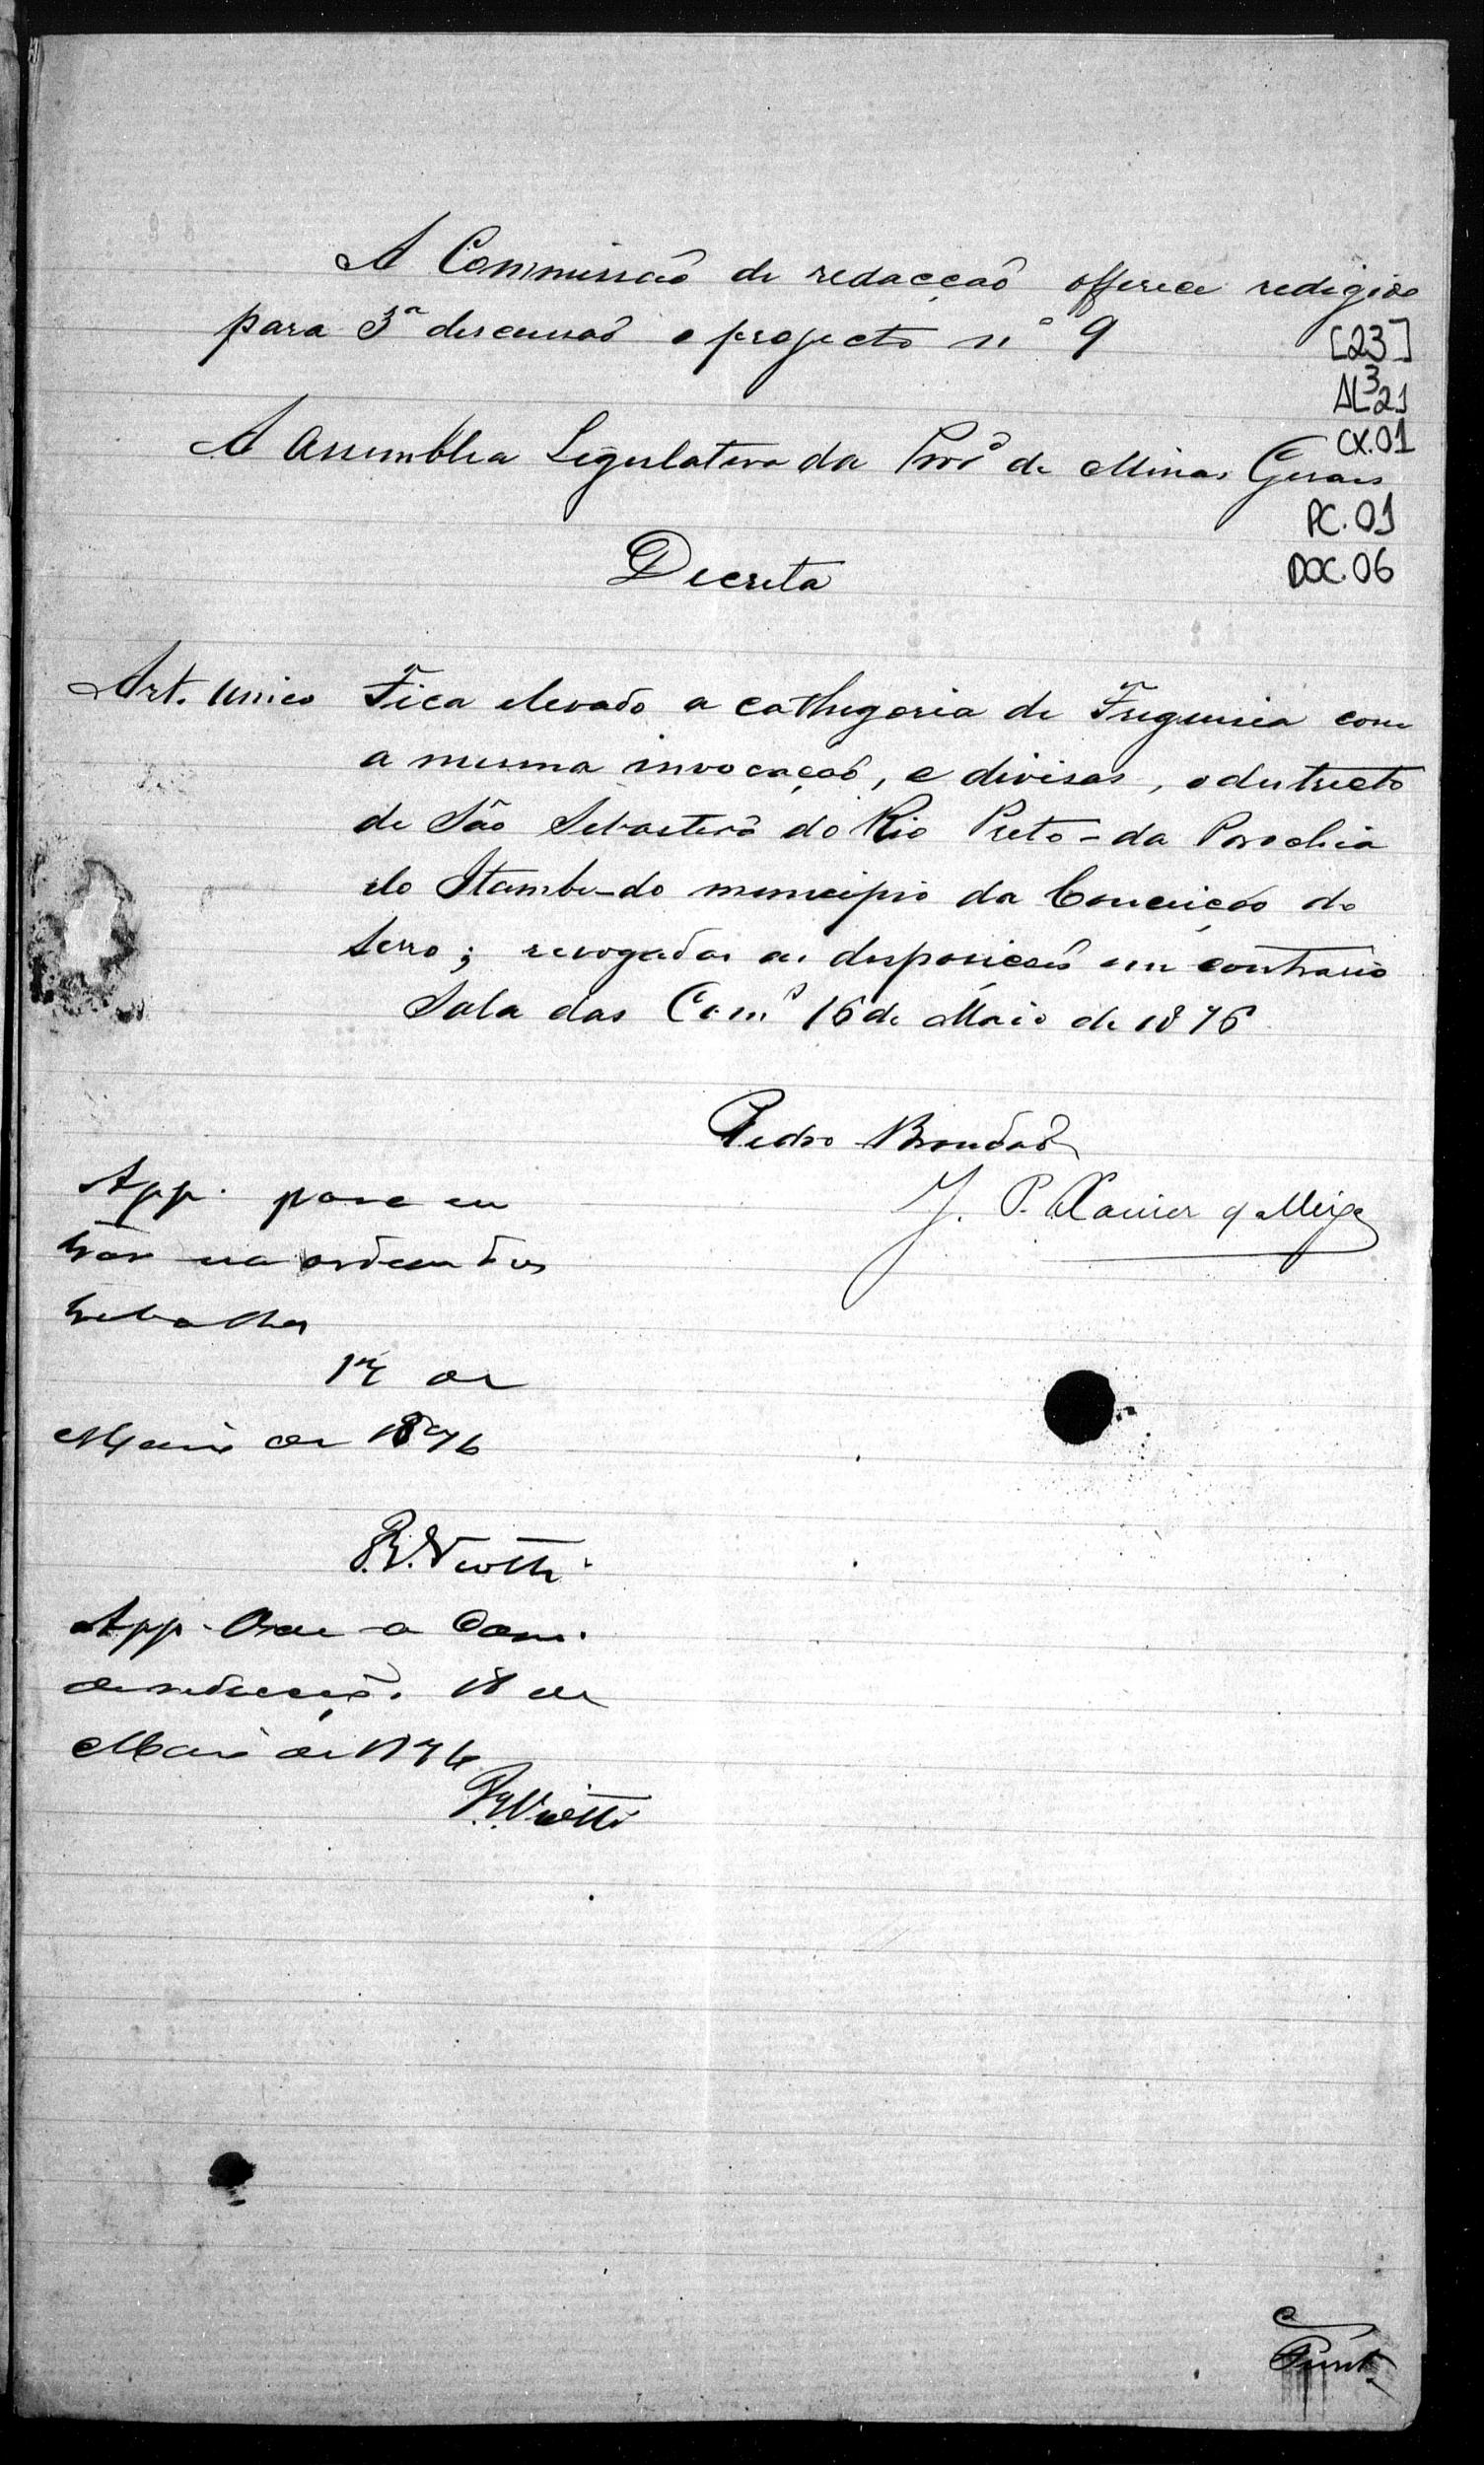 A Commissaõ de redacçaõ offerece redigido
para 3ª discussaõ o projecto nº 9
[23]
AL³21
CX.01
A Assemblea Legislativa da Prov.ª de Minas Geraes
PC.01
Decreta
DOC.06
Art. Unico Fica elevado a cathegoria de Freguesia com
a mesma invocaçaõ, e divisas, o districto
de São Sebastiaõ do Rio Preto - da Parochia
do Itambé - do municipio da Conceiçaõ do
Serro; revogadas as disposiçoẽs em contrario
Sala das Com.s 16 de Maio de 1876
Pedro Brandaõ
J. P. Xavier da Veiga
App. para en
trar na ordem dos
trabalhos
17 de
Maio de 1876
P. E. Viotti
App. Vae a Com.
de redacçaõ. 18 de
Maio de 1876
Viotti